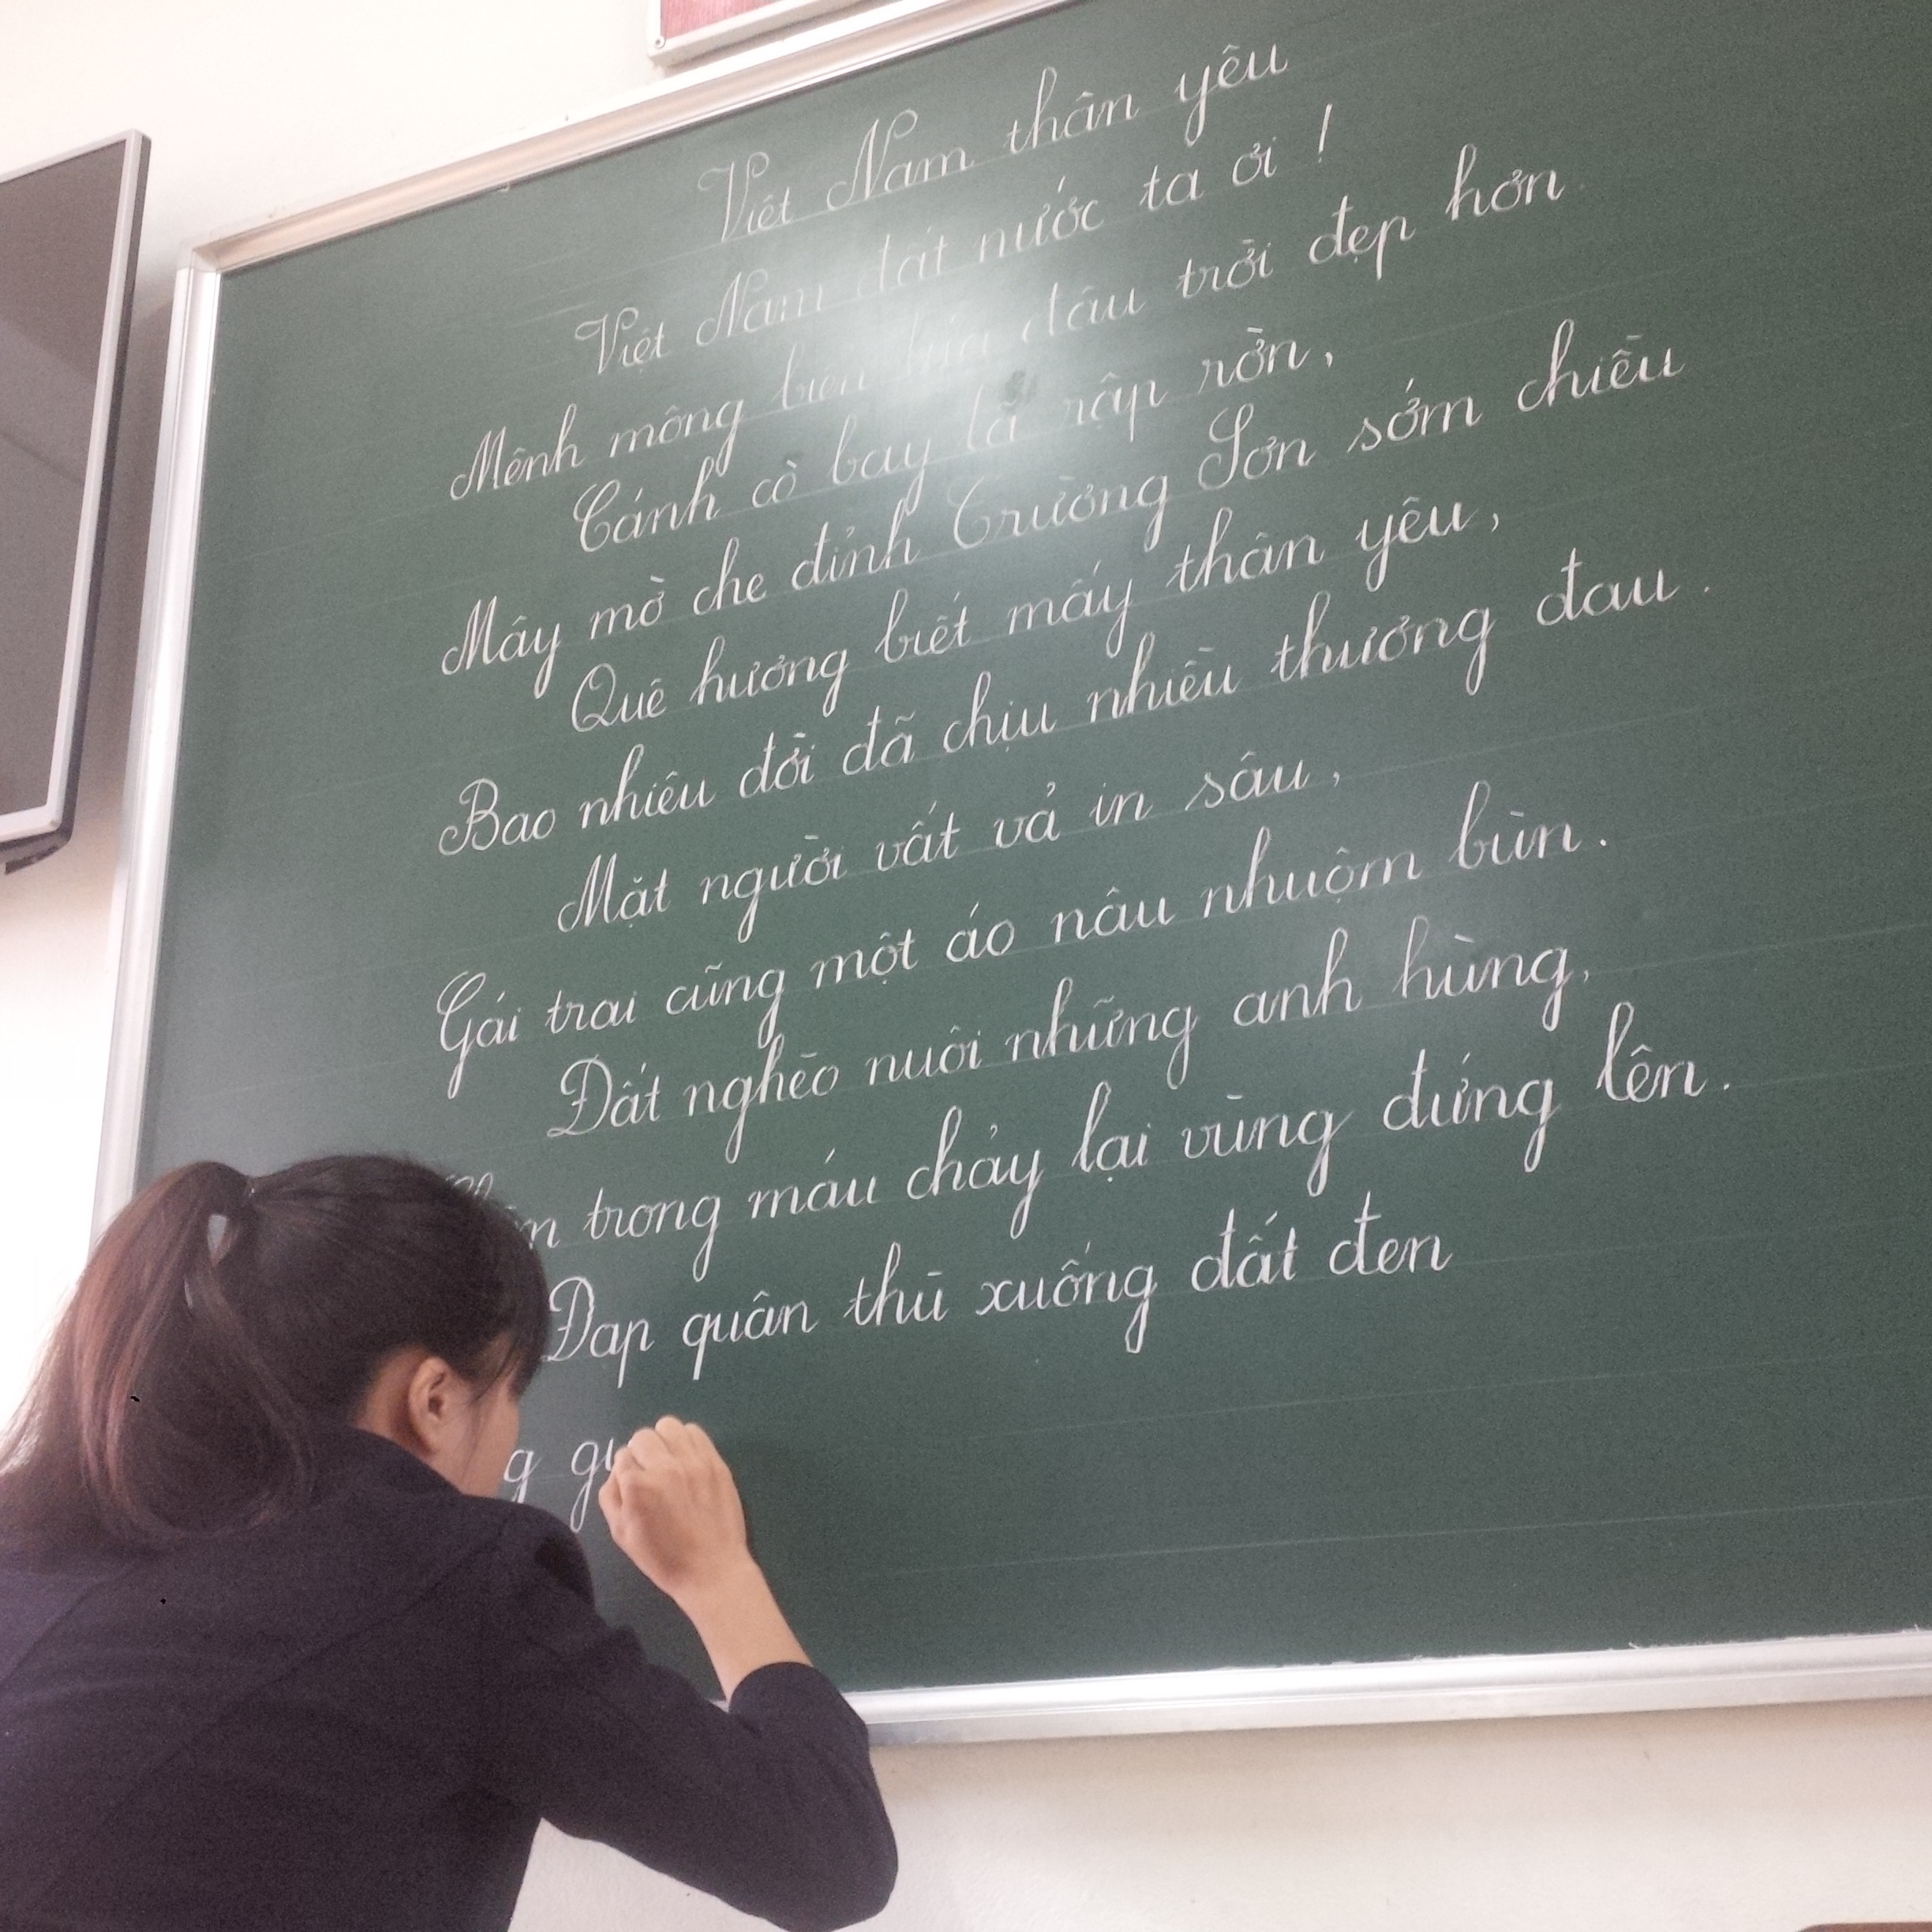 Việt Nam thân yêu
Việt Nam đất nước ta ơi !
Mênh mông biển lúa đâu trời đẹp hơn
Cánh cò bay lả rập rờn,
Mây mờ che đỉnh Trường Sơn sớm chiều
Quê hương biết mấy thân yêu,
Bao nhiêu đời đã chịu nhiều thương đau.
Mặt người vất vả in sâu,
Gái trai cũng một áo nâu nhuộm bùn.
Đất nghèo nuôi những anh hùng,
trong máu chảy lại vùng đứng lên.
Đạp quân thù xuống đất đen